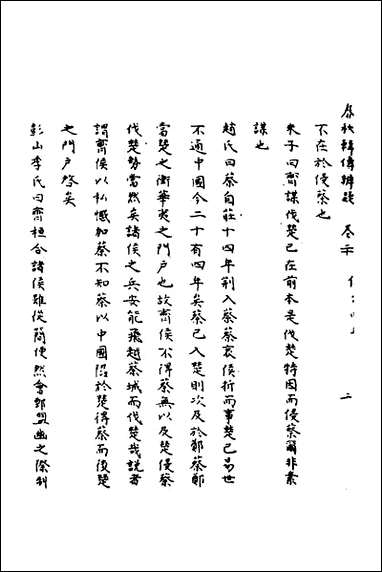 春秋輯傳辨疑 卷二
不在於侵蔡也
朱子曰齊謀伐楚已在前本是伐楚特因而侵蔡爾非素
謀也
趙氏曰蔡自莊十四年荆入蔡蔡哀侯折而事楚已易世
不通中國今二十有四年矣蔡已入楚則次及於鄭蔡鄭
當楚之衝華夷之門户也故齊侯不得蔡無以及楚侵蔡
伐楚勢當然矣諸侯之兵安能飛越蔡城而伐楚哉説者
謂齊侯以私憾加蔡不知蔡以中國陷於楚得蔡而後楚
之門户啓矣
彭山李氏曰齊桓合諸侯雖從簡便然會鄄盟幽之際列